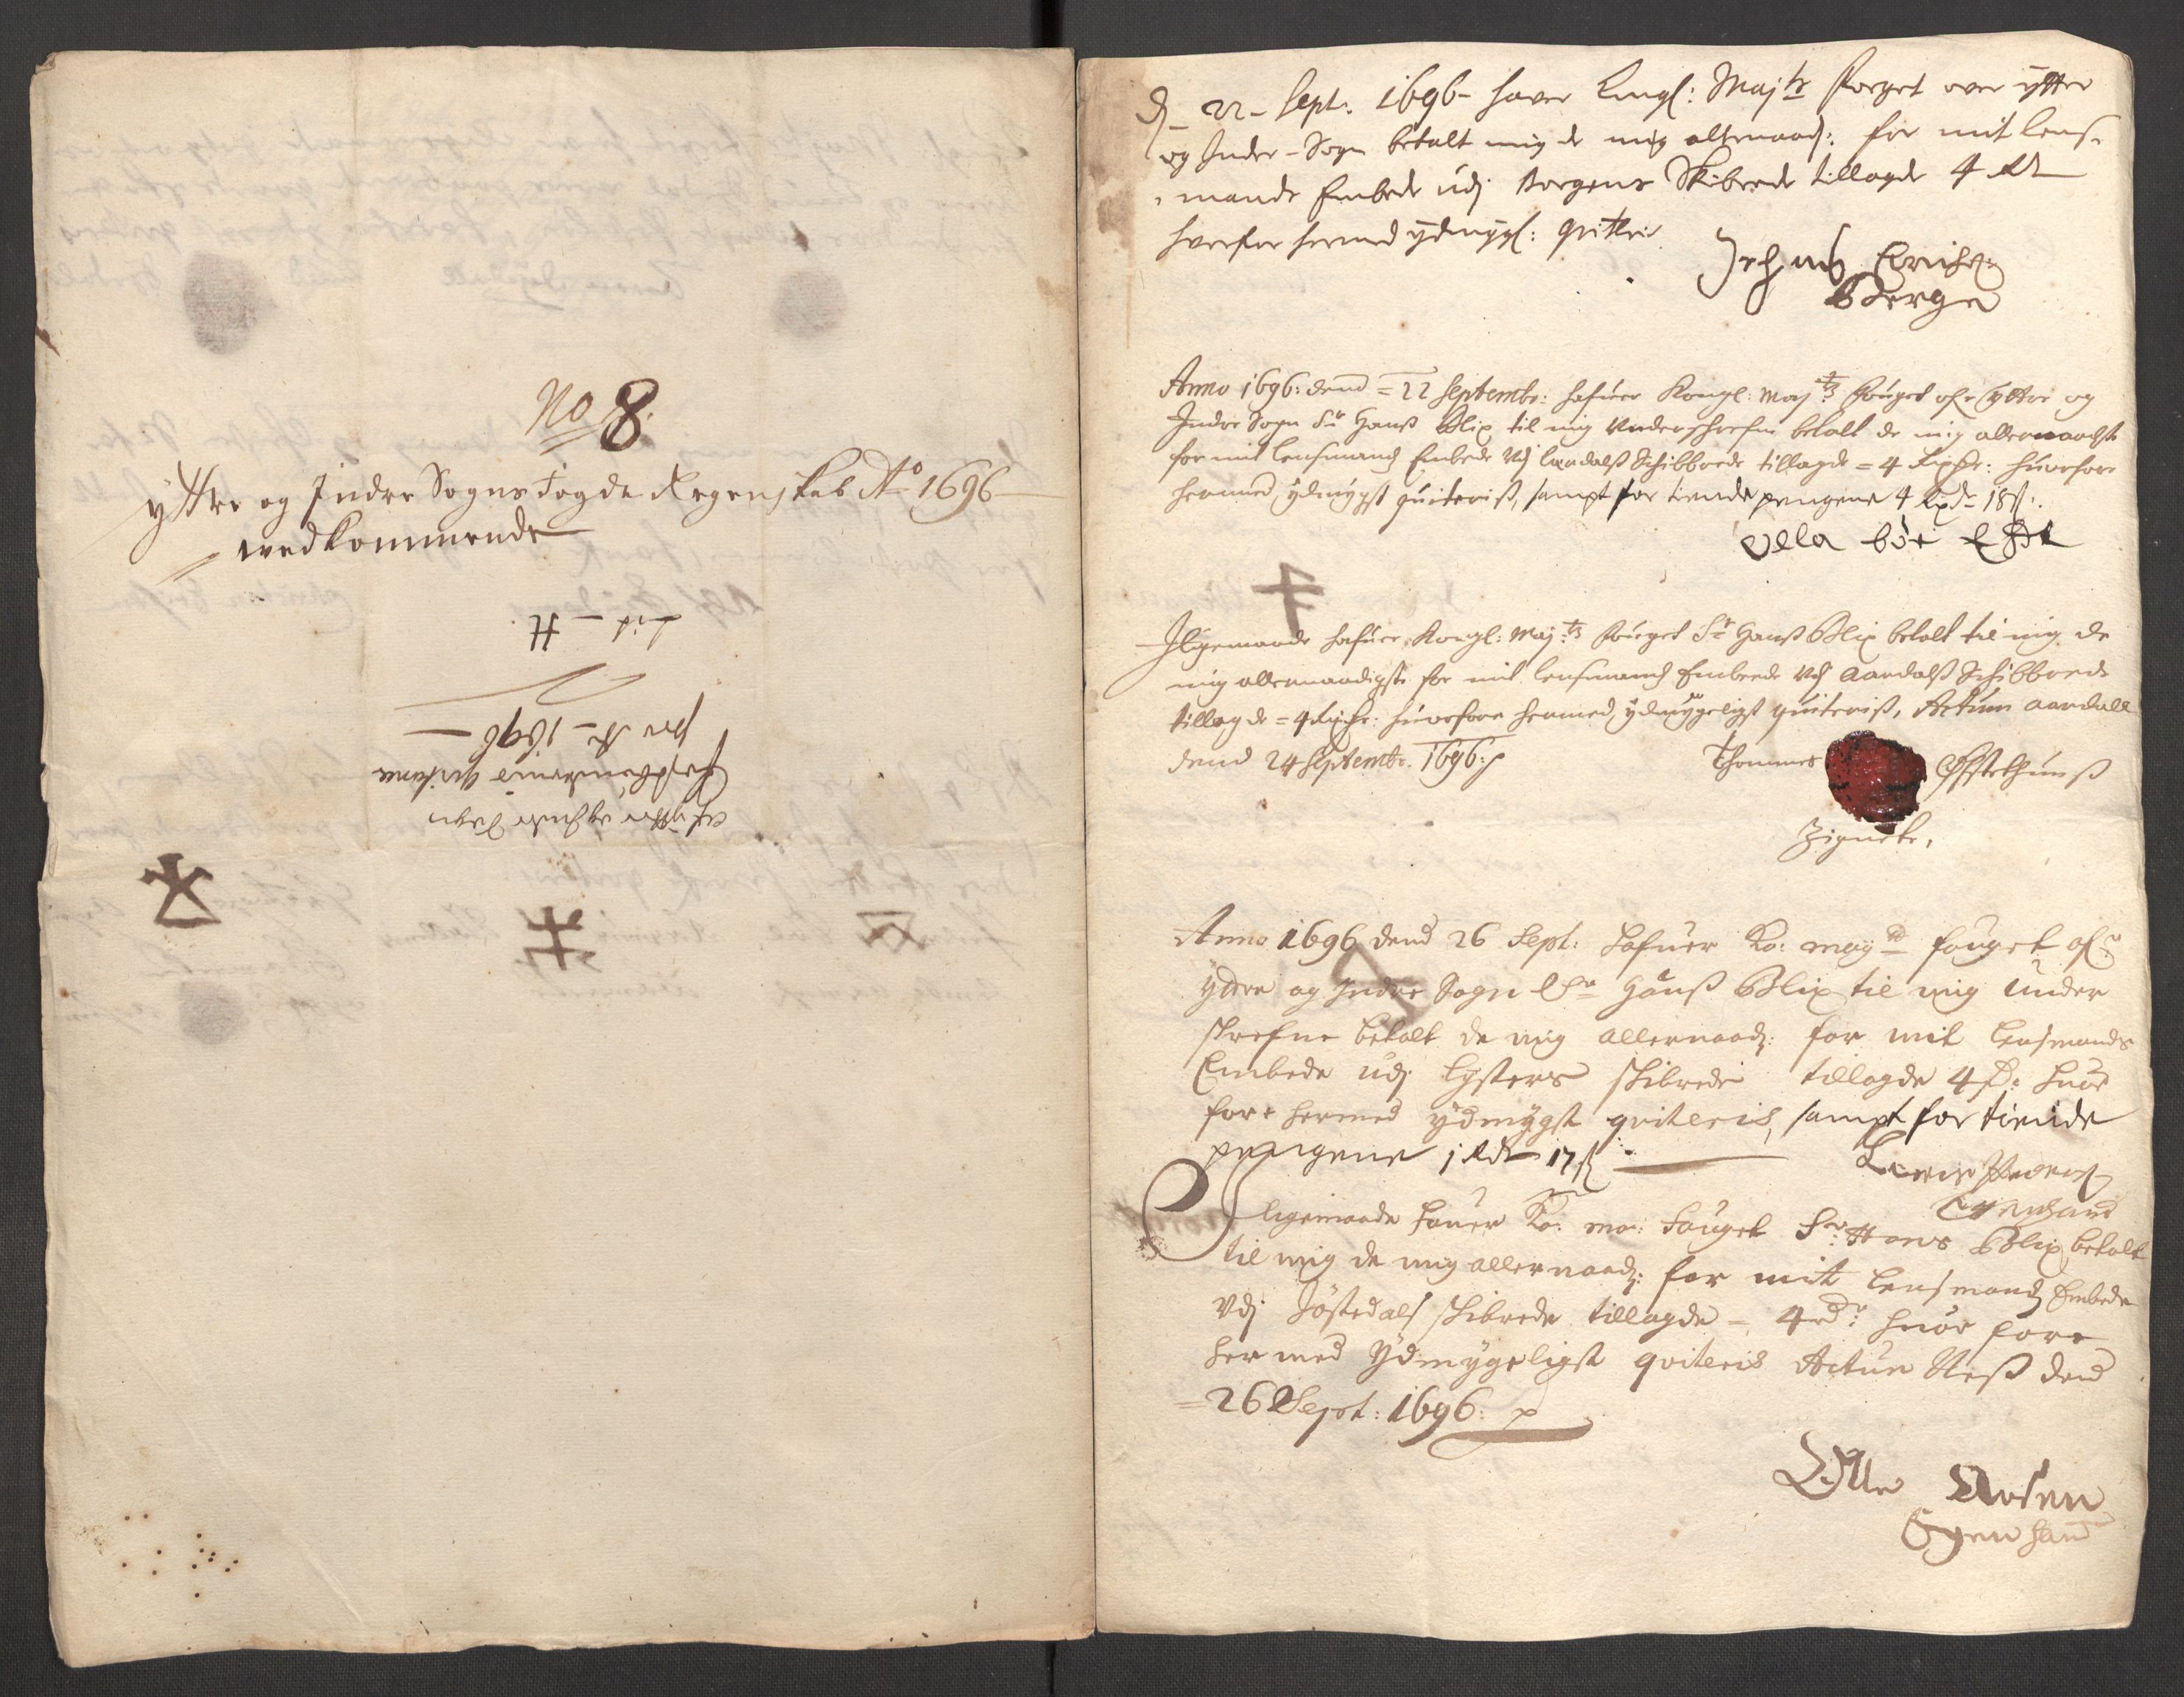 No 8.
Yttre og Indre Sogns Fogde Regenskab Ao 1696
wedkommende
Lit - H.
pro Ao 1696
af Yttre og Indre Sogn
D. 22 Sept: 1696 haver Kongl: Maj:ts Foeget over ytter
og Inder-Sogn betalt mig de mig allernaad: for mit lens-
mands Embede udj Borgens Skibrede tillagde 4 Rdr
hvorfor hermed ydmygl: qvitteris
Erichs:
Berge
Anno 1696: dend = 22 Septembr: hafuer Kongl: May:ts Fouget ofr Yttre og
Indre Sogn Sr Hanss Blix til mig Underschrefne betalt de mig allernaadigst
for mit Lensmands Embede Udj Laudalss Schibbrede tillagde = 4 Rixdr: huorfore
hermed ydmygst quiteriss, sampt for tiende pengene 4 Rixdr 18 s:
Iligemaade hafuer Kongl: May:ts Fouget Sr Hanss Blix betalt til mig de
mig allernaadigste for mit Lensmands Embede Udj Aardalss Schibbrede
tillagde = 4 Rixdr: huorfore hermed ydmygeligst quiteriss, Actum Aardall
dend 24 Septembr. 1696:
Thommes Offstethunss
Zignete,
Anno 1696 dend 26 Sept: hafuer Ko: may:ts fouget ofr
ydtre og Indre Sogn Sr Hanss Blix til mig under
skrefne betalt de mig allernaad: for mit Lensmands
Embede udj Lysters skibrede tillagde 4 R: huor
fore hermed ydmygst qviteris, sampt for tiende
pengene j Rdr 17 s
Egenhand
Iligemaade hauer Ko: ma: Fouget Sr: Hans Blix betalt
til mig de mig allernaad: for mit Lensmands Embede
Udj Jøstedals skibrede tillagde = 4 rdr: huor fore
her med Ydmygeligst qviteris Actum Ness dend
= 26 Sept: 1696:
Olle
Egen hand